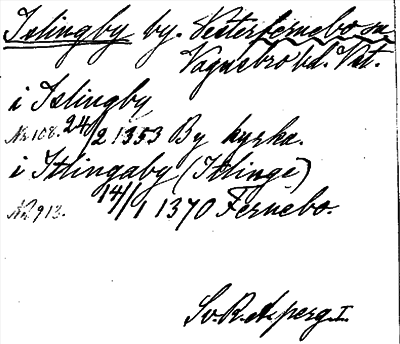 Islingby by. Vesterfernebo sn
Vagnsbro hd. Vstm.
i Islingby
Nr 108. 24/2 1353 By kyrka.
i Itlingaby (Itlinge)
Nr 913. 14/1 1370 Fernebo.
Sv. R. A. perg. I.